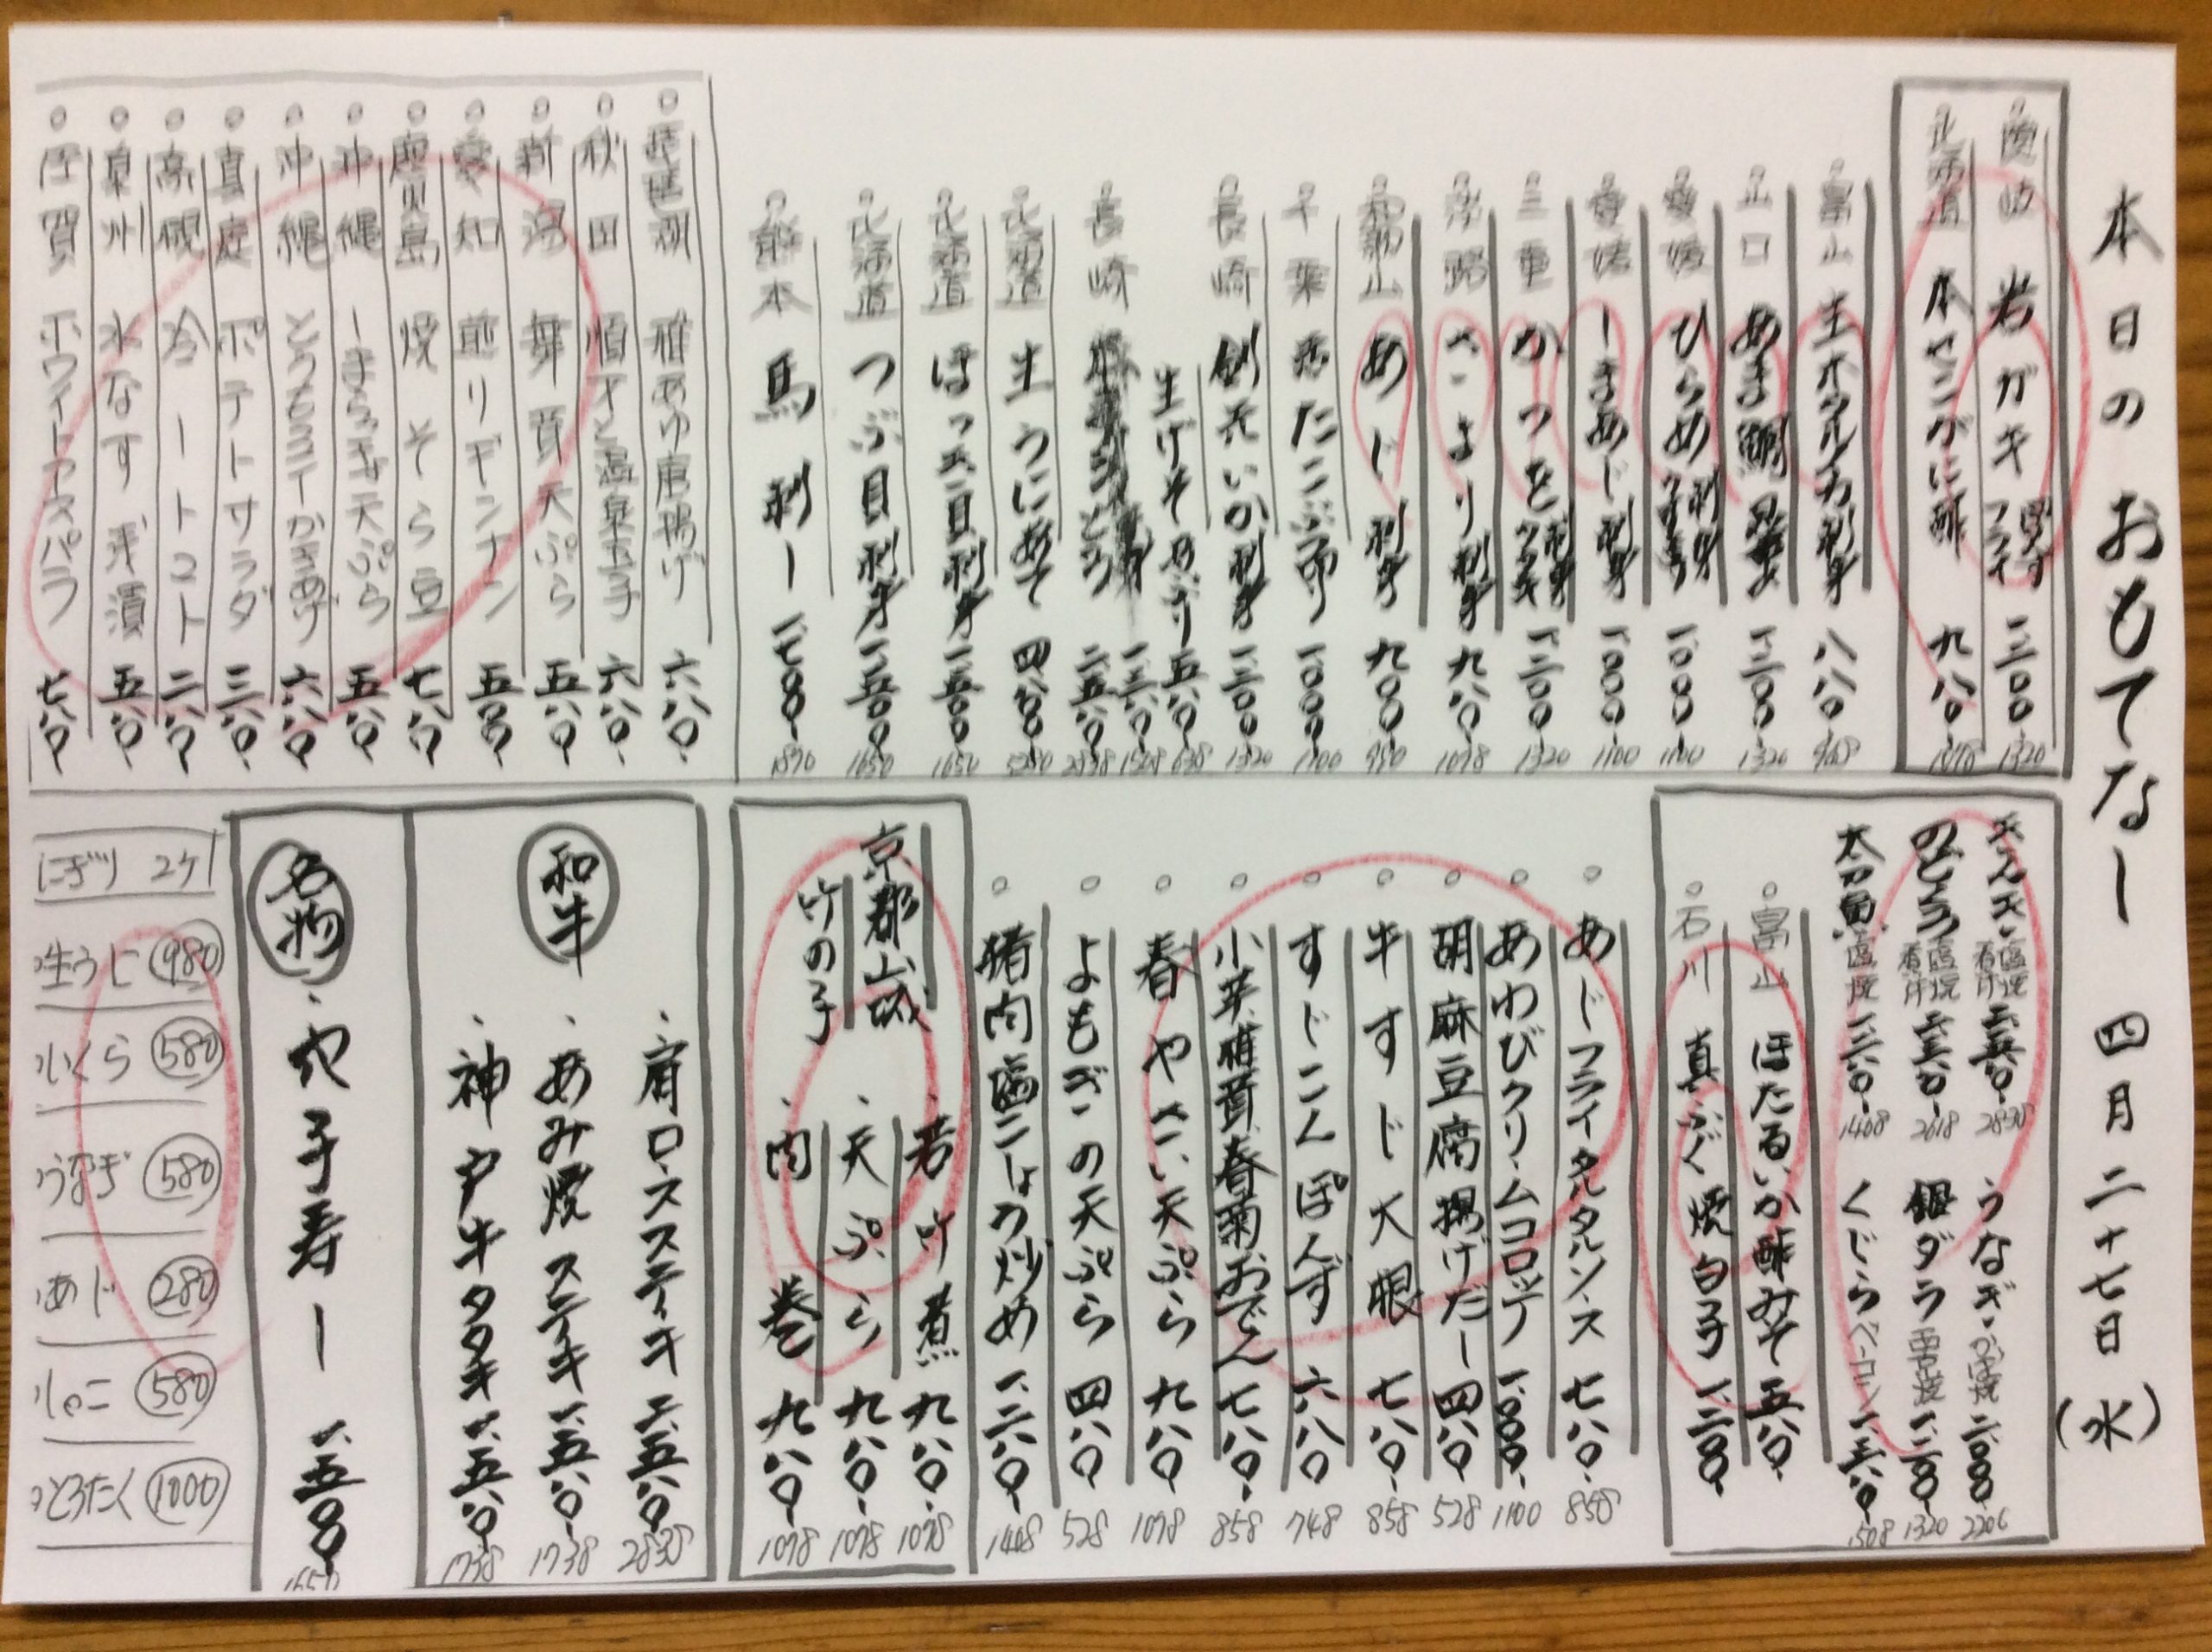 本日のおもてなし 四月二十七日(水)
岩ガキ フライ 一、二〇〇 1320
北海道 本せこがに酢 九八〇 1078
富山 生ホタルイカ刺身 八八〇 968
山口 あま鯛 一、二〇〇 1320
愛媛 ひらめ 刺身 一、〇〇〇 1100
愛媛 しまあじ 刺身 一、〇〇〇 1100
三重 かつを 刺身 タタキ 一、二〇〇 1320
淡路 さより 刺身 九八〇 1078
和歌山 あじ 刺身 九〇〇
千葉 一、〇〇〇 1100
長崎 剣先いか 刺身 一、二〇〇 1320
生げそあぶり 五八〇 638
長崎 二、五八〇 2838
北海道 生うにあて 四、八〇〇 5280
北海道 ほっき貝 刺身 一、五〇〇 1650
北海道 つぶ貝 刺身 一、五〇〇 1650
熊本 馬刺し 一、七〇〇 1870
琵琶湖 稚あゆ唐揚げ 六八〇
秋田 順才と温泉玉子 六八〇
新潟 舞茸天ぷら 五八〇
愛知 煎りギンナン 五八〇
鹿児島 焼そら豆 七八〇
沖縄 しまらっきょ天ぷら 五八〇
沖縄 とうもろこしかきあげ 六八〇
真庭 ポテトサラダ 三八〇
高槻 冷しトマト 二八〇
泉州 水なす浅漬 五八〇
佐賀 ホワイトアスパラ 七八〇
塩焼 煮付 二、五八〇 2838
のどぐろ 塩焼 煮付 2618
太刀魚 塩焼 1408
うなぎ 二、〇八〇
銀ダラ 西京焼 一、二〇〇 1320
くじらベーコン 一、三八〇
富山 ほたるいか酢みそ 五八〇
石川 真ふぐ焼白子 一、二八〇
あじフライタルタルソース 七八〇 858
あわびクリームコロッケ 一、〇〇〇 1100
胡麻豆腐揚げだし 四八〇 528
牛すじ大根 七八〇 858
すじこんぽんず 六八〇 748
小芋椎茸春菊おでん 七八〇 858
春やさい天ぷら 九八〇 1078
よもぎの天ぷら 四八〇 528
猪肉塩こしょう炒め 一、二八〇 1408
京都山城 竹の子
若竹煮 九八〇 1078
天ぷら 九八〇 1078
肉巻 九八〇 1078
和牛
肩ロースステーキ 二、五八〇 2838
あみ焼ステーキ 一、五八〇 1738
神戸牛タタキ 一、五八〇 1738
名物
穴子寿し 一、五〇〇 1650
にぎり 2ケ
生うに 980
いくら 580
うなぎ 580
あじ 280
しゃこ 580
とろたく 1000